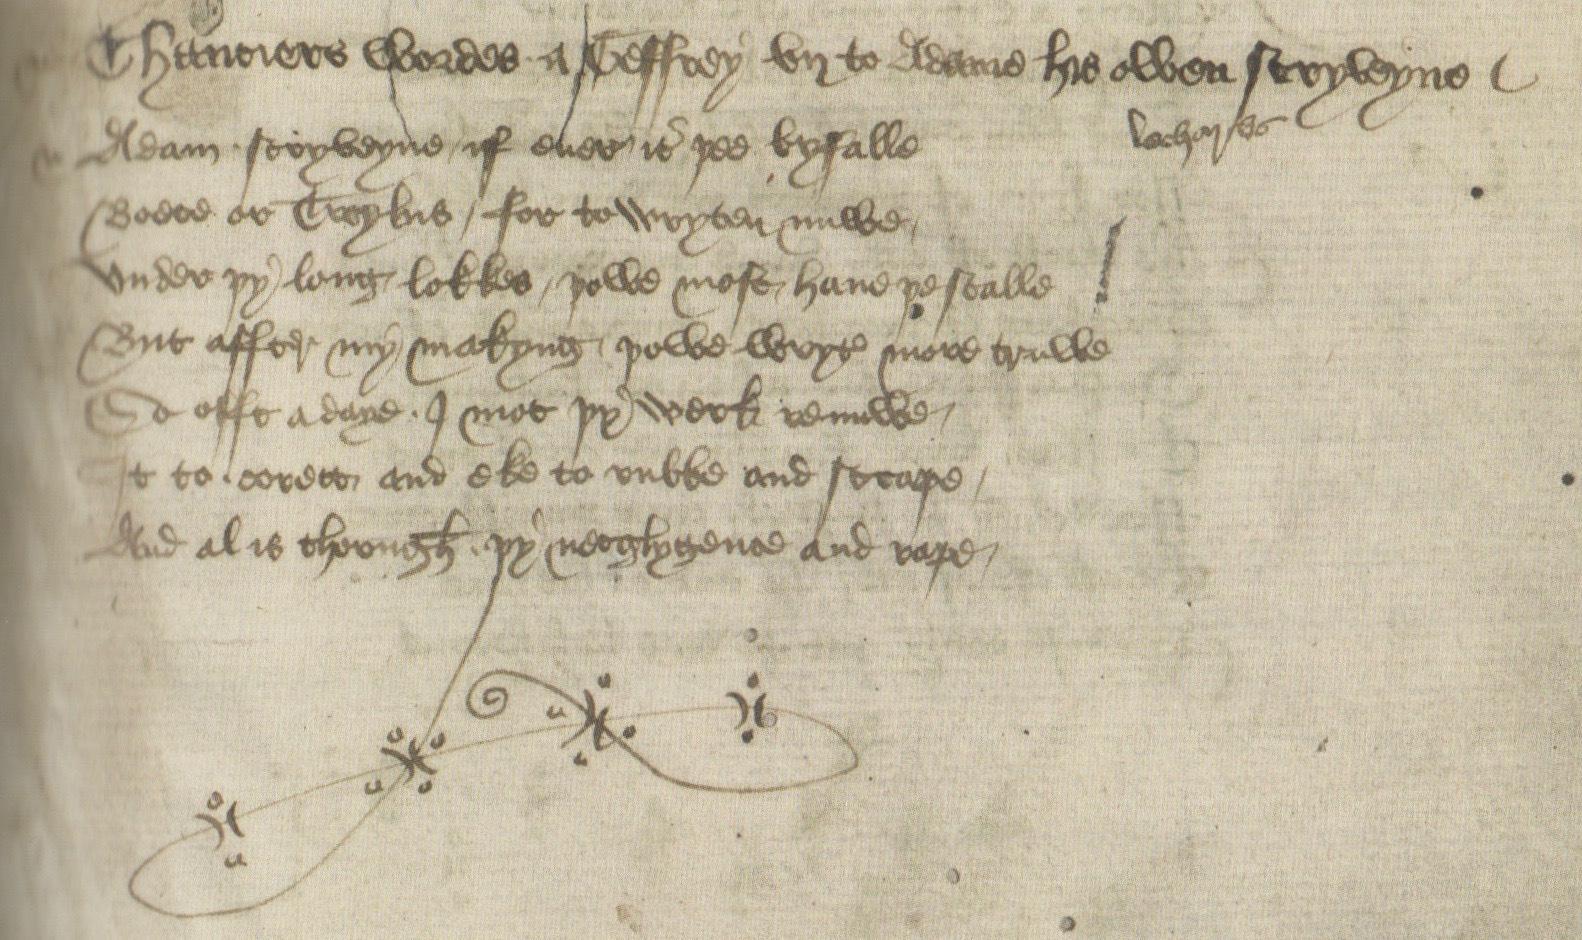 Chauciers wordes .a. Geffrey vn to Adame his owen scryveyne
lachares
Adam . scryveyne / if euer it þee byfalle
Boece or Troylus / for to wryten nuwe /
Vnder þy long lokkes / þowe most haue þe scalle
But affter my makyng þowe wryt more truwe
So offt adaye . I mot þy werk renuwe /
It to . corect and eke to rubbe and scrape /
And al is thorough . þy necglygence and rape /